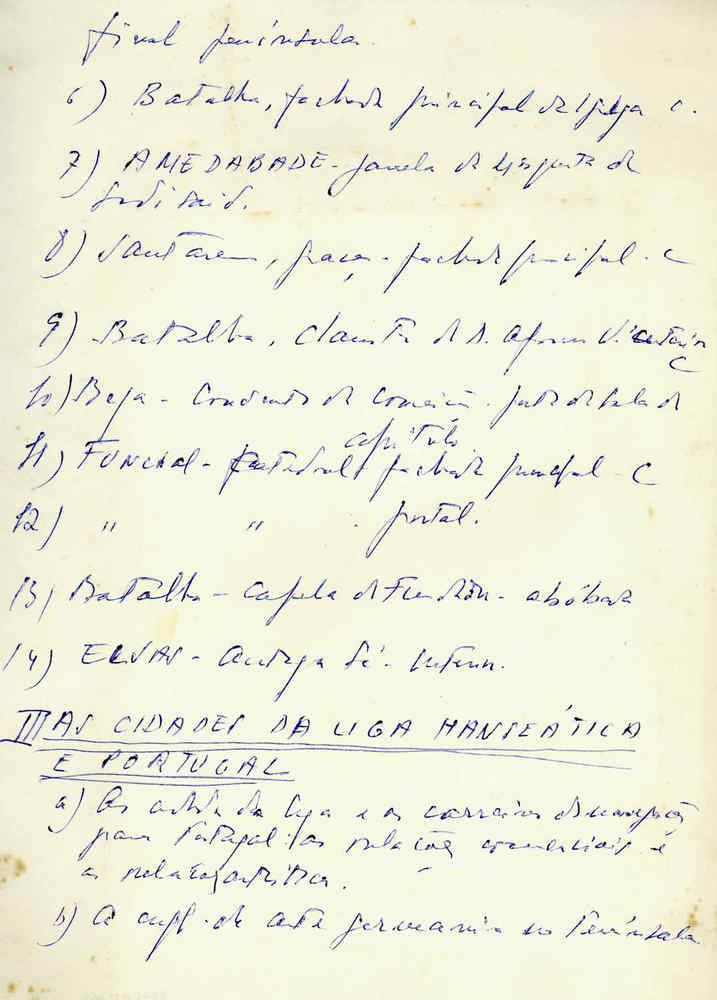 final península.
6) Batalha, fachada principal da Igreja C.
7) AMEDABADE - Janela da mesquita de
Sidi Said.
8) Santarem, Graça - fachada principal - C
9) Batalha, claustro de D. Afonso V.
C
10) Beja - Convento da Conceição - porta da sala do
capítulo
11) FUNCHAL - Catedral fachada principal - C
12) " " . portal.
13) Batalha - Capela do Fundador - abóbada
14) ELVAS - Antiga Sé - Interior.
III AS CIDADES DA LIGA HANSEÁTICA
E PORTUGAL
a) As da Liga e as carreiras de navegação
para Portugal: as relações comerciais e
as relações artísticas.
b) A de arte germanica na Península